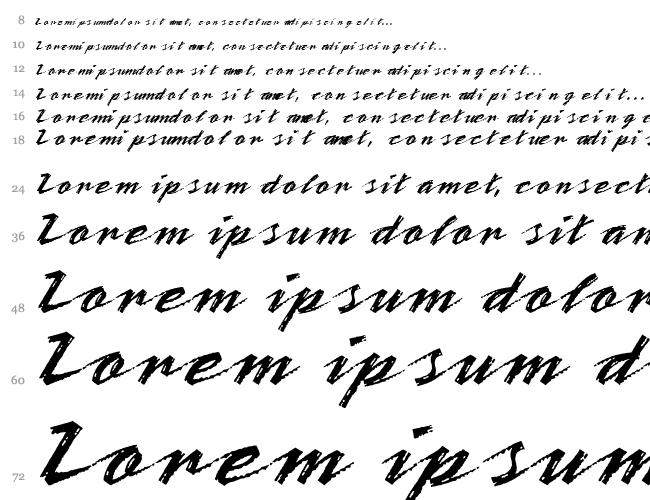 8 Lorem ipsum dolor sit amet, consectetuer adipiscing elit...
10 Lorem ipsum dolor sit amet, consectetuer adipiscing elit...
12 Lorem ipsum dolor sit amet, consectetuer adipiscing elit...
14 Lorem ipsum dolor sit amet, consectetuer adipiscing elit...
16 Lorem ipsum dolor sit amet, consectetuer adipiscing e
18 Lorem ipsum dolor sit amet, consectetuer adipis
24 Lorem ipsum dolor sit amet, consect
36 Lorem ipsum dolor sit am
48 Lorem ipsum dolor
60 Lorem ipsum d
72 Lorem ipsum